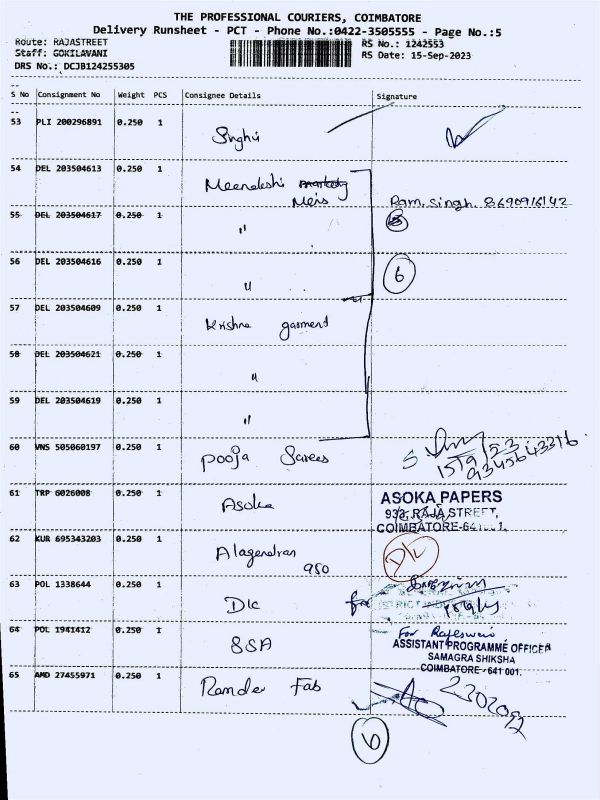 THE PROFESSIONAL COURIERS, COIMBATORE
Delivery Runsheet - PCT - Phone No.:0422-3505555 - Page No.:5
Route: RAJASTREET RS No.: 1242553
Staff: GOKILAVANI RS Date: 15-Sep-2023
DRS No.: DCJB124255305
S No Consignment No Weight PCS Consignee Details Signature
53 PLI 200296891 0.250 1
54 DEL 203504613 0.250 1 Meenakshi
Ram. Singh. 8690916142
55 DEL 203504617 0.250 1 "
56 DEL 203504616 0.250 1 " 6
57 DEL 203504609 0.250 1 Krishna garment
58 DEL 203504621 0.250 1 "
59 DEL 203504619 0.250 1 "
60 VNS 505060197 0.250 1 Pooja Sarees
15/9/23
9345643316
61 TRP 6026008 0.250 1 Asoka ASOKA PAPERS
RAJA STREET,
COIMBATORE-641001.
62 KUR 695343203 0.250 1 Alagendran D/c
950
63 POL 1338644 0.250 1 D/c for
64 POL 1941412 0.250 1 SSA For Rajeswari
ASSISTANT PROGRAMME OFFICER
SAMAGRA SHIKSHA
COIMBATORE - 641 001.
65 AMD 27455971 0.250 1 Ramdev Fab
2302092
6